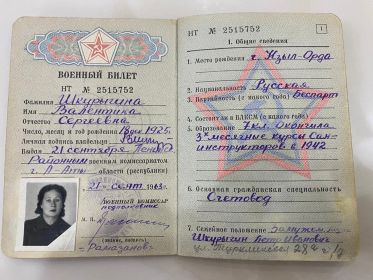 НТ № 2515752
ВОЕННЫЙ БИЛЕТ
НТ № 2515752
Фамилия Шкурыгина
Имя Валентина
Отчество Сергеевна
Число, месяц и год рождения 1925
Личная подпись владельца
Выдан 21 сентября
Районным военным комиссариатом
г. А-Ата
21 сент 1963
Военный комиссар
подполковник
М. П.
Рамазанов
(звание, подпись)
1
I. Общие сведения
1. Место рождения г. Кзыл-Орда
2. Национальность Русская
3. Партийность (с какого года) Беспарт
4. Состоит ли в ВЛКСМ (с какого года)
5. Образование 7 кл. Окончила
3х месячные курсы Сан-
инструкторов в 1942
6. Основная гражданская специальность
Счетовод
7. Семейное положение Замужем
Шкурыгин Петр Иванович
ул.